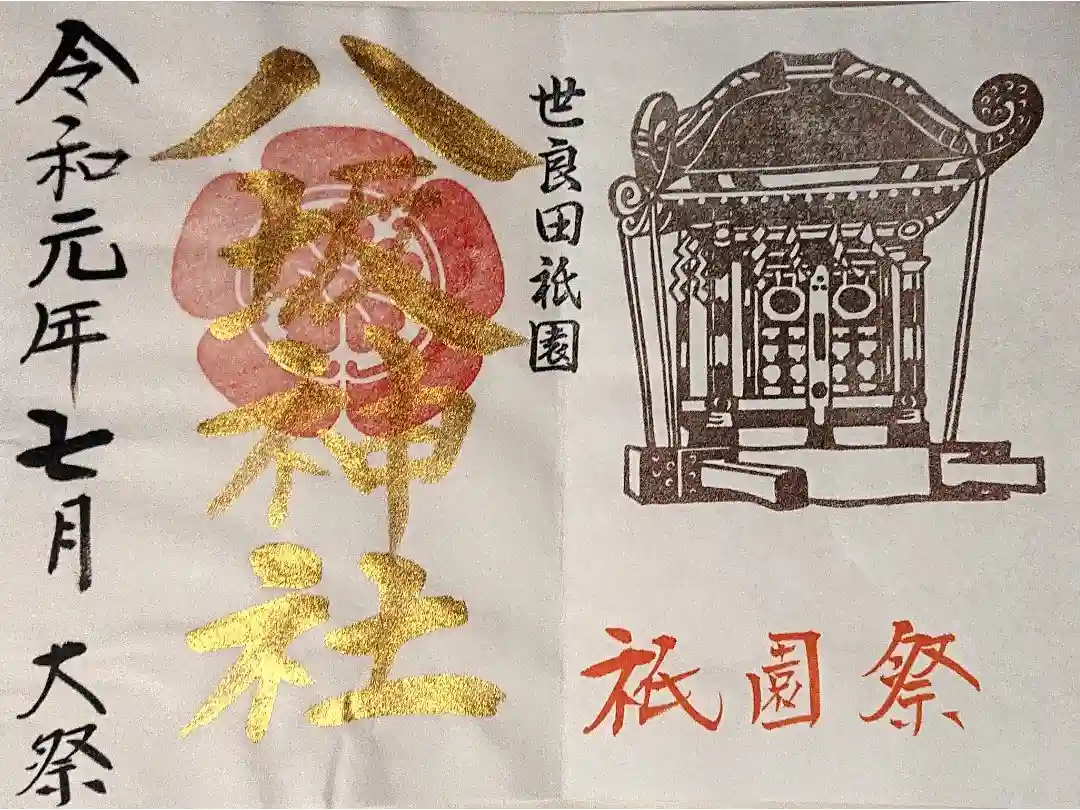 世良田祇園
八坂神社
令和元年七月 大祭
祇園祭